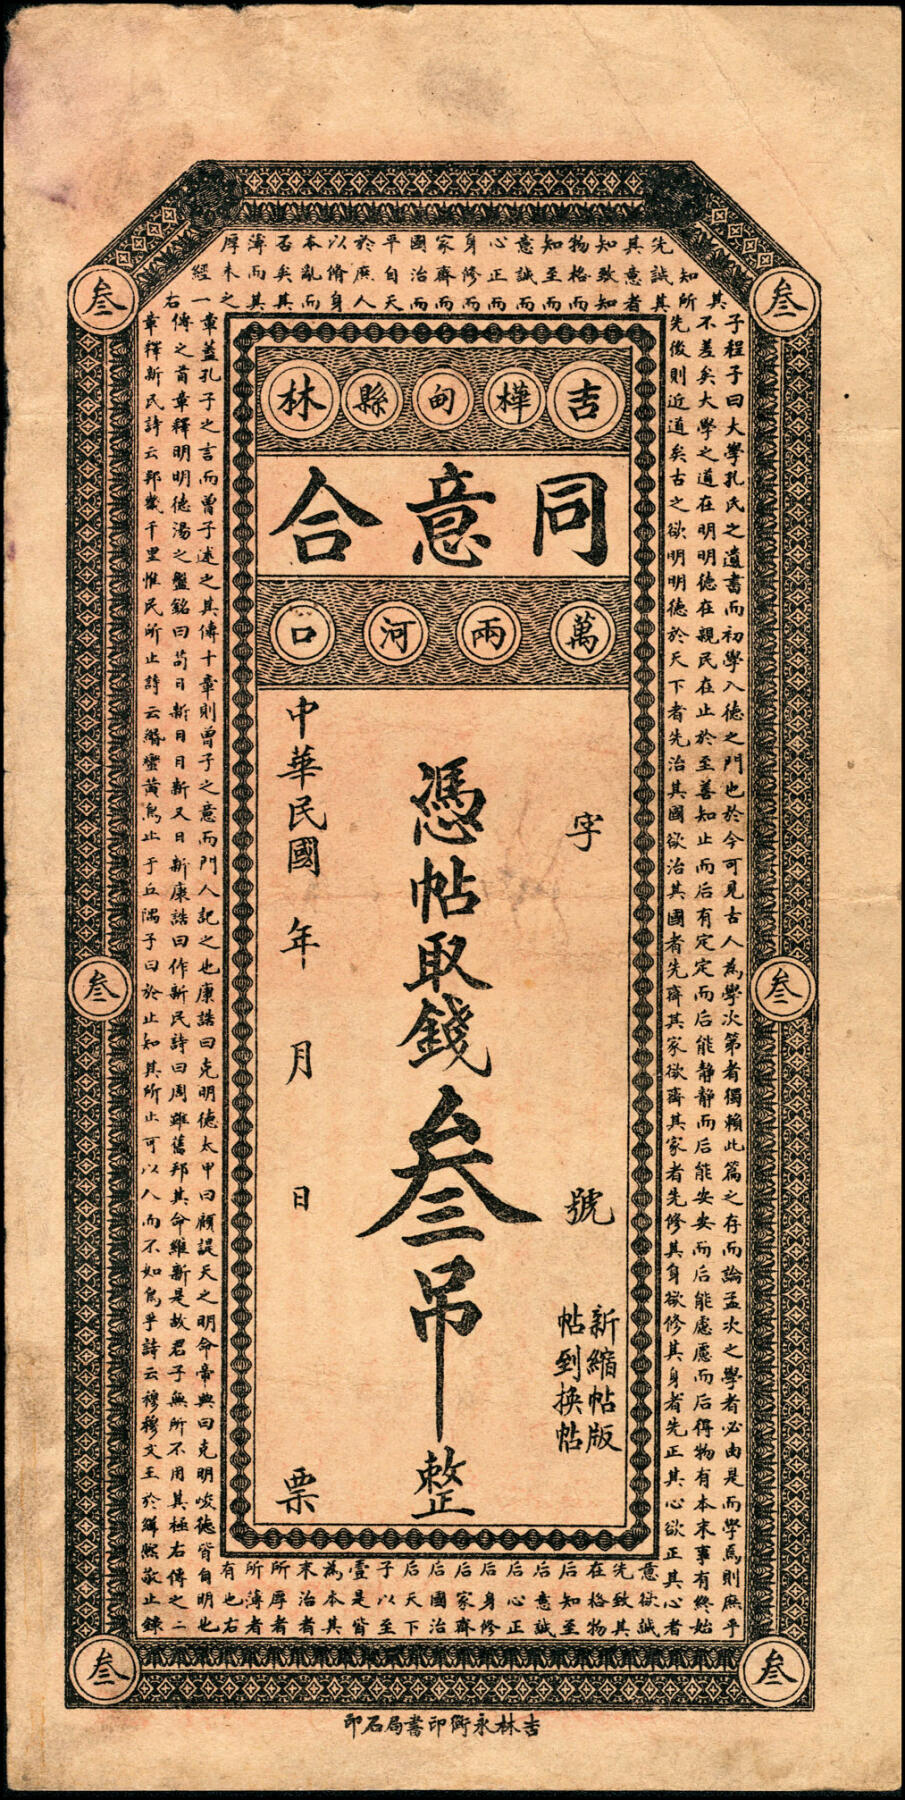 吉樺甸縣林
同意合
萬兩河口
字 號
新縮帖版
帖到換帖
憑帖取錢叁吊整
中華民國 年 月 日 票
叁
叁
叁
叁
叁
叁
子程子曰大學孔氏之遺書而初學入德之門也於今可見古人為學次第者獨賴此篇之存而論孟次之學者必由是而學焉則庶乎
不差矣大學之道在明明德在親民在止於至善知止而后有定定而后能靜靜而后能安安而后能慮慮而后得物有本末事有終始
先後則近道矣古之欲明明德於天下者先治其國欲治其國者先齊其家欲齊其家者先修其身欲修其身者先正其心欲正其心者
先誠其意欲誠其意者
意欲誠
先致其
在格物
后知至
后意誠
后心正
后身修
后家齊
后國治
后天下
子以至
壹是皆
為本其
末治者
所厚者
所薄者
有也右
其
知所
先誠其
其意者
知致知
物格而
知至而
意誠而
心正而
身修而
家齊而
國治而
平自天
於庶人
以脩身
本亂而
否矣其
薄而其
厚未之
經一
右
章蓋孔子之言而曾子述之其傳十章則曾子之意而門人記之也康誥曰克明德太甲曰顧諟天之明命帝典曰克明峻德皆自明也
傳之首章釋明明德湯之盤銘曰苟日新日日新又日新康誥曰作新民詩曰周雖舊邦其命維新是故君子無所不用其極右傳之二
章釋新民詩云邦畿千里惟民所止詩云緡蠻黃鳥止于丘隅子曰於止知其所止可以人而不如鳥乎詩云穆穆文王於緝熙敬止錄
吉林永衡印書局石印